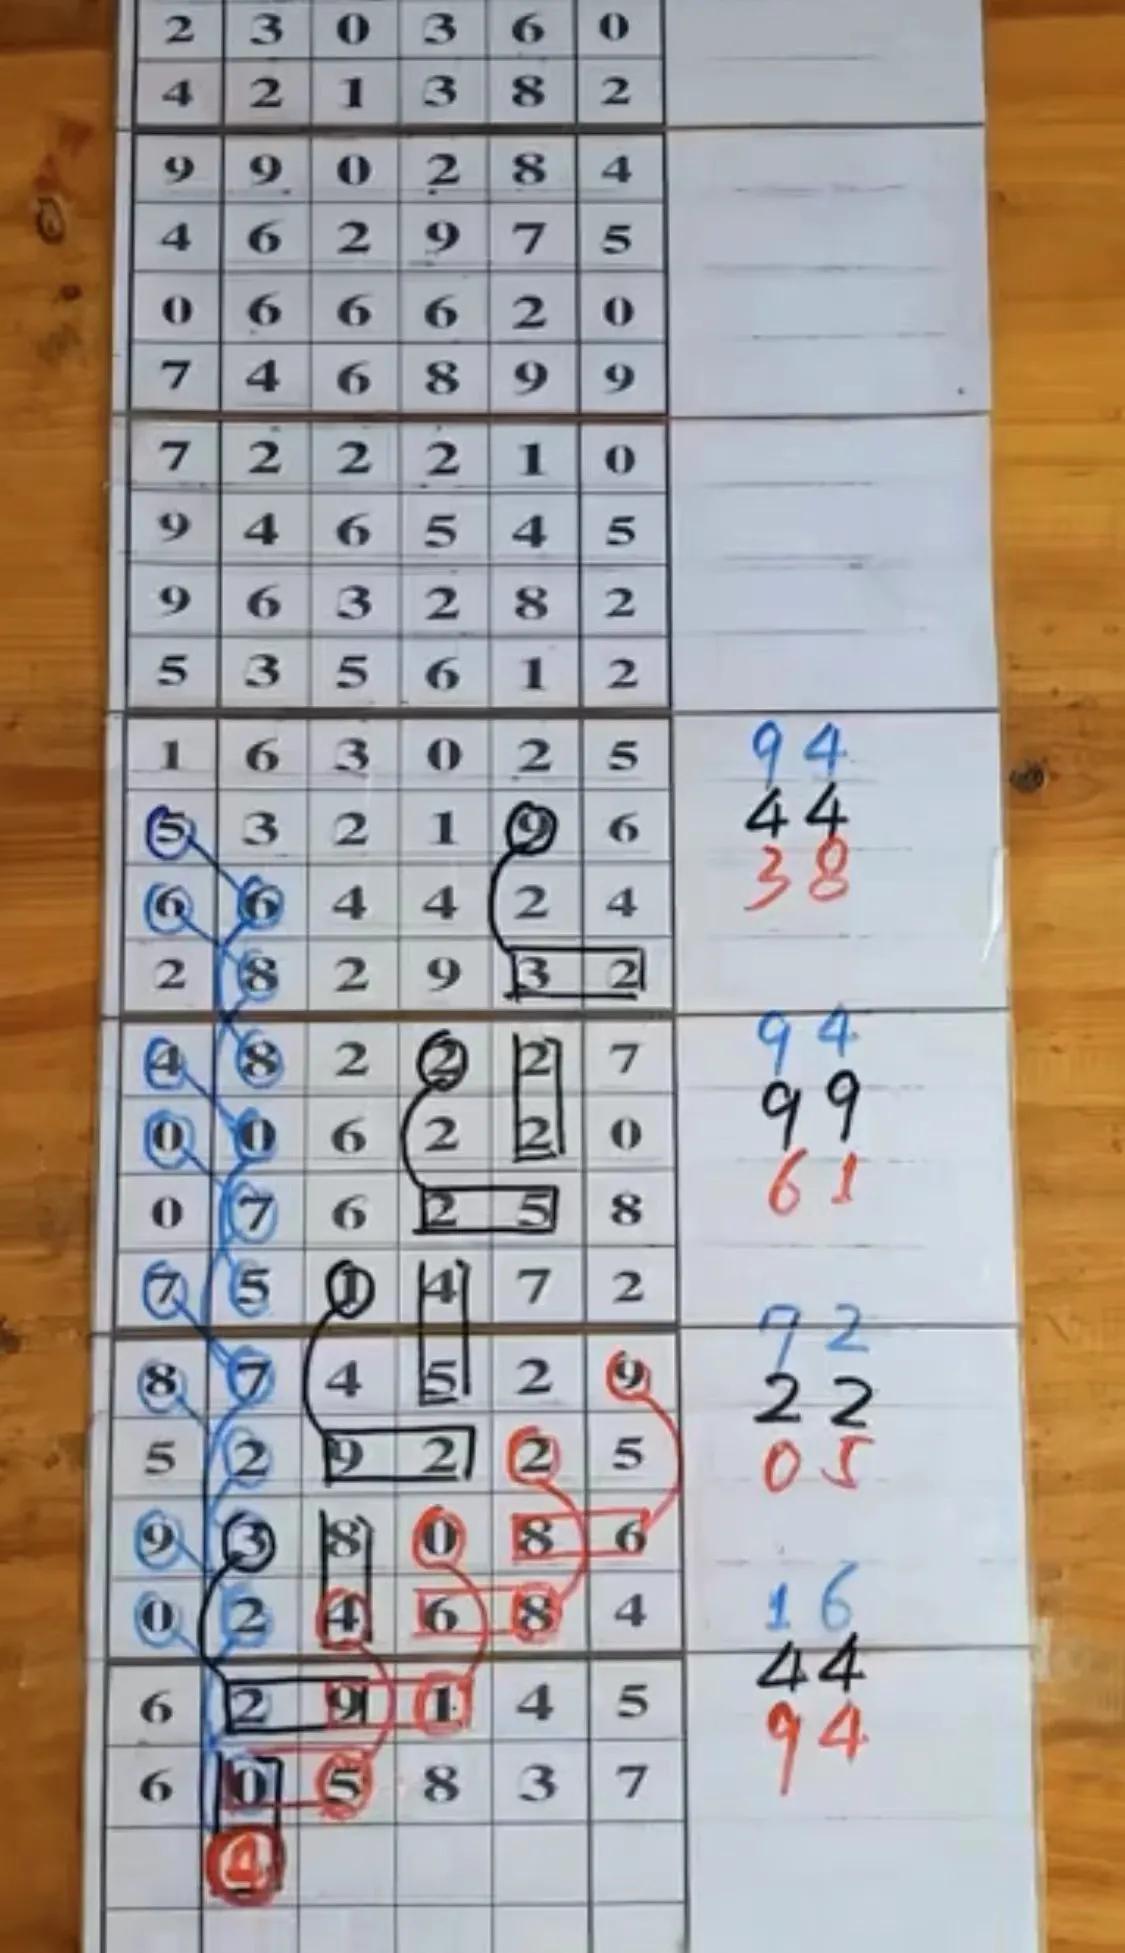 2 3 0 3 6 0
4 2 1 3 8 2
9 9 0 2 8 4
4 6 2 9 7 5
0 6 6 6 2 0
7 4 6 8 9 9
7 2 2 2 1 0
9 4 6 5 4 5
9 6 3 2 8 2
5 3 5 6 1 2
1 6 3 0 2 5 94
5 3 2 1 9 6 44
6 6 4 4 2 4 38
2 8 2 9 3 2
4 8 2 2 2 7 94
0 0 6 2 2 0 99
0 7 6 2 5 8 61
7 5 1 4 7 2
8 7 4 5 2 9 72
5 2 9 2 2 5 22
9 3 8 0 8 6 05
0 2 4 6 8 4 16
6 2 9 1 4 5 44
6 0 5 8 3 7 94
4